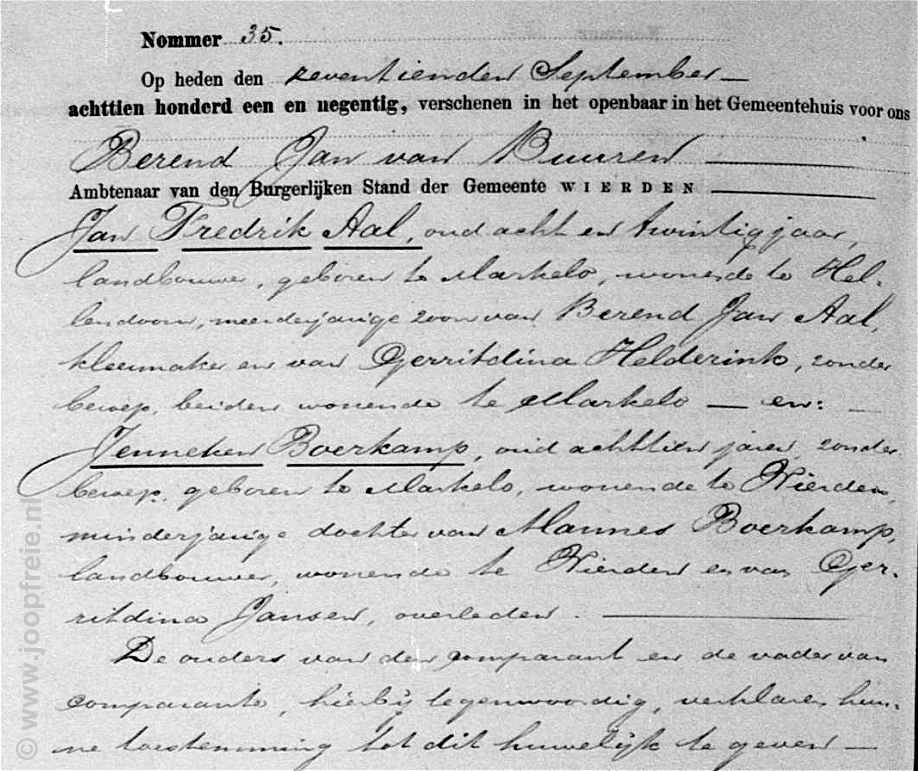 Nommer 35.
Op heden den zeventienden September —
achttien honderd een en negentig, verschenen in het openbaar in het Gemeentehuis voor ons
Berend Jan van Buuren ———
Ambtenaar van den Burgerlijken Stand der Gemeente WIERDEN ———
Jan Fredrik Aal, oud acht en twintig jaar,
landbouwer, geboren te Markelo, wonende te Hel-
lendoorn, meerderjarige zoon van Berend Jan Aal,
kleermaker en van Gerritdina Helderink, zonder
beroep, beiden wonende te Markelo — en: —
Jenneken Boerkamp, oud achttien jaren, zonder
beroep, geboren te Markelo, wonende te Wierden,
minderjarige dochter van Mannes Boerkamp,
landbouwer, wonende te Wierden en van Ger-
ritdina Jansen, overleden. ———
De ouders van den comparant en de vader van
comparante, hierbij tegenwoordig, verklaren hun-
ne toestemming tot dit huwelijk te geven —
© www.joopfreie.nl